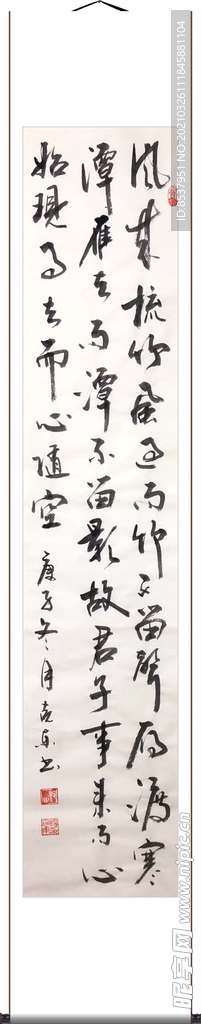 风来梳竹風过而竹不留聲雁渡寒
潭雁去而潭不留影故君子事来而心
始現事去而心随空
庚子冬月
ID:8337951 NO:20210326111845881104
昵享网 www.nipic.cn